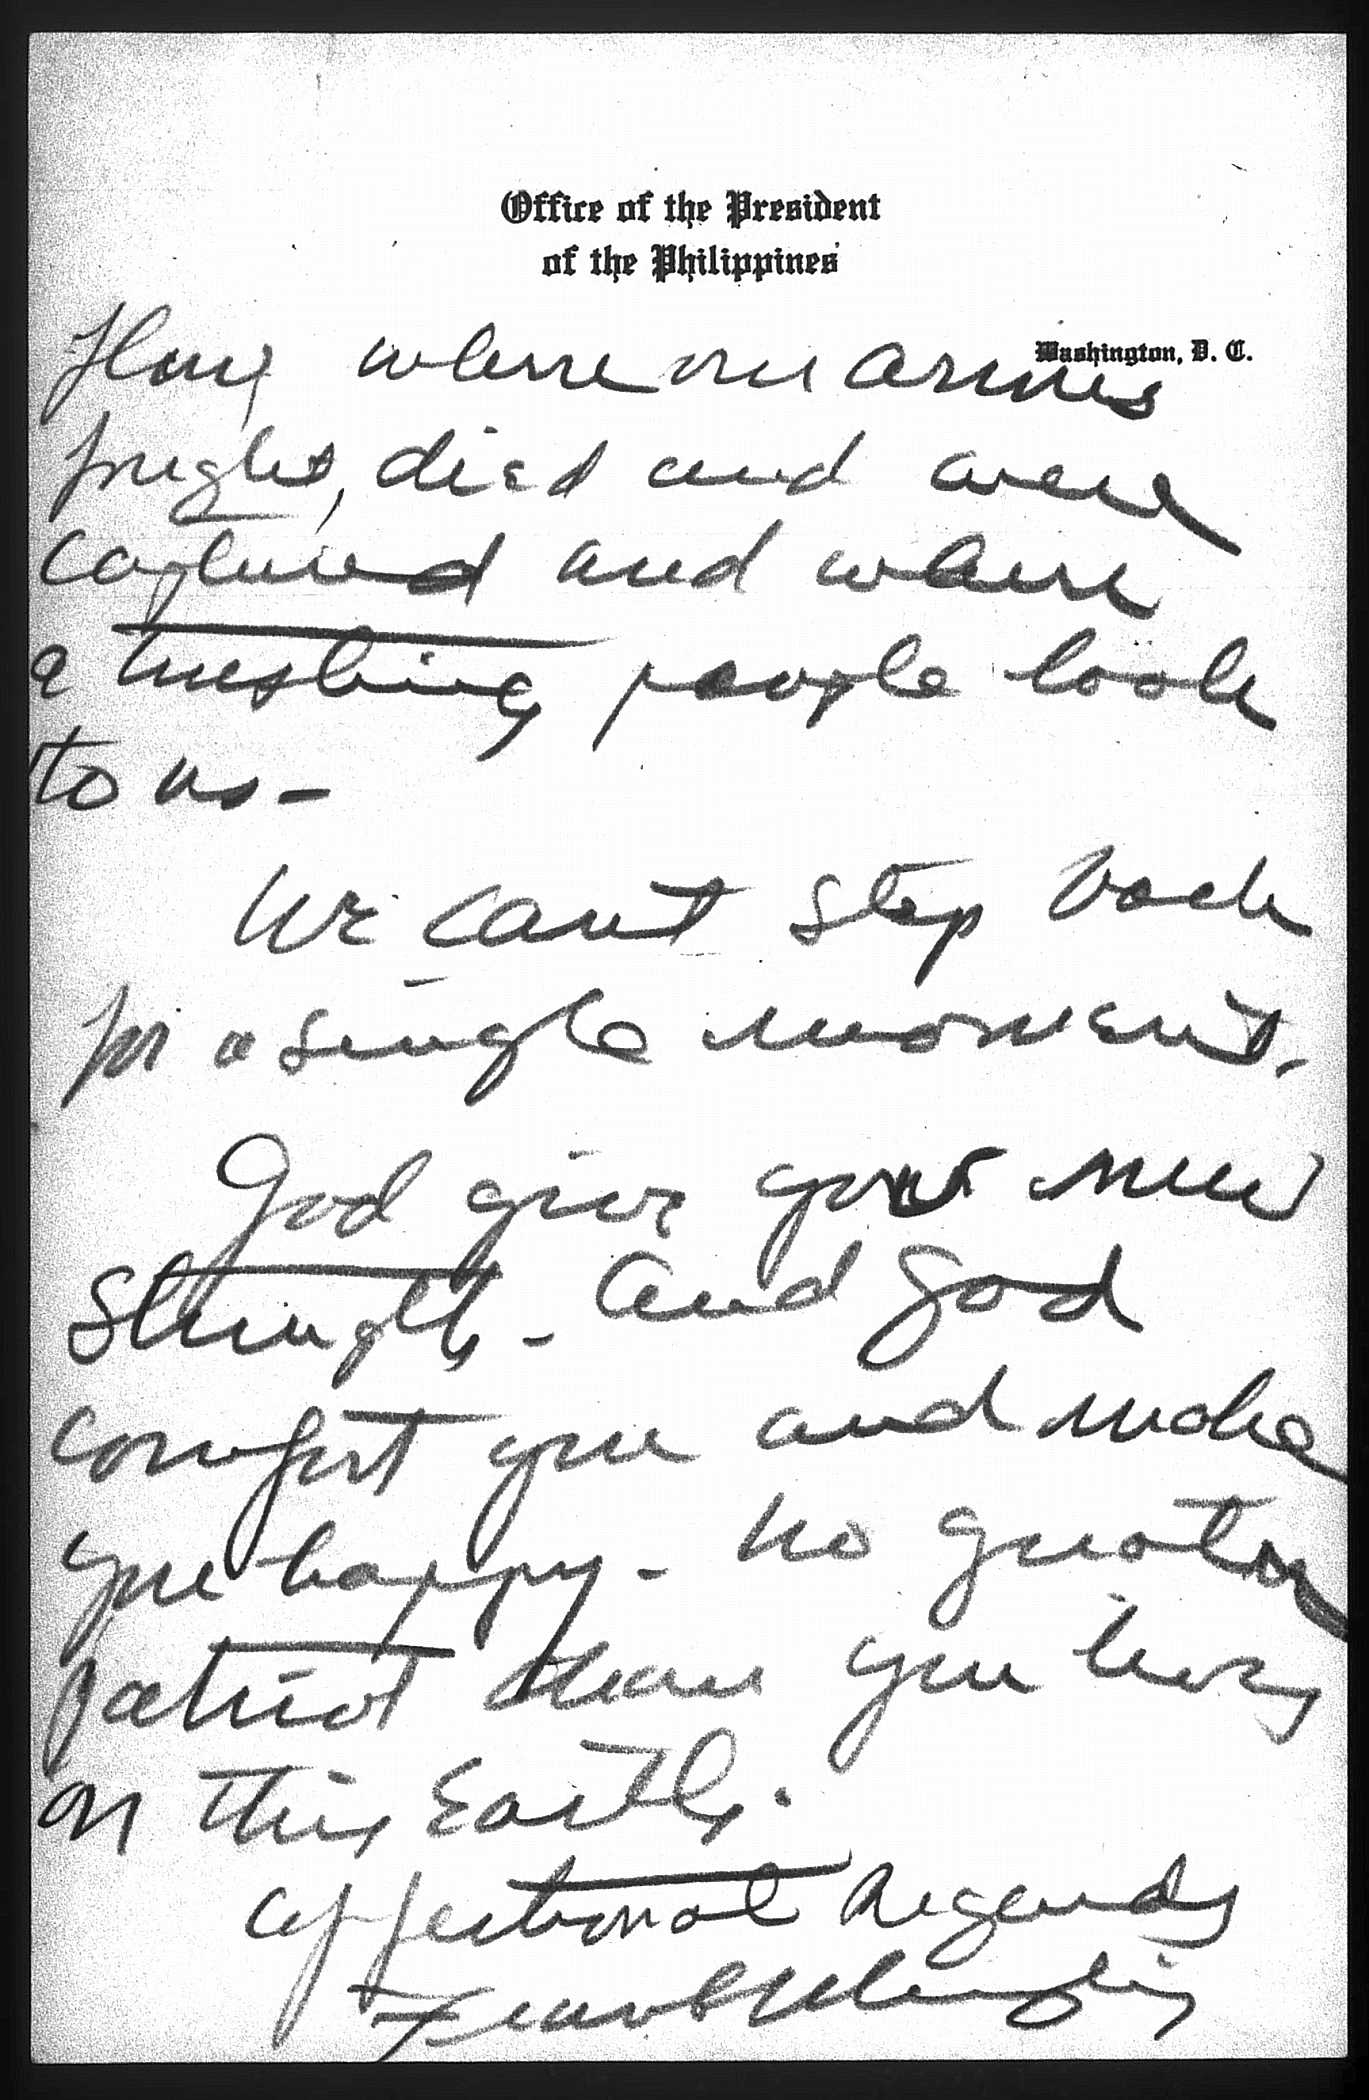 Office of the President
of the Philippines
Washington, D. C.
where our armies
fought, died and were
captured and where
a trusting people look
to us -
We can't step back
for a single moment.
God give you new
strength - and God
comfort you and make
you happy - No greater
patriot than you lives
on this Earth.
affectionate Regards